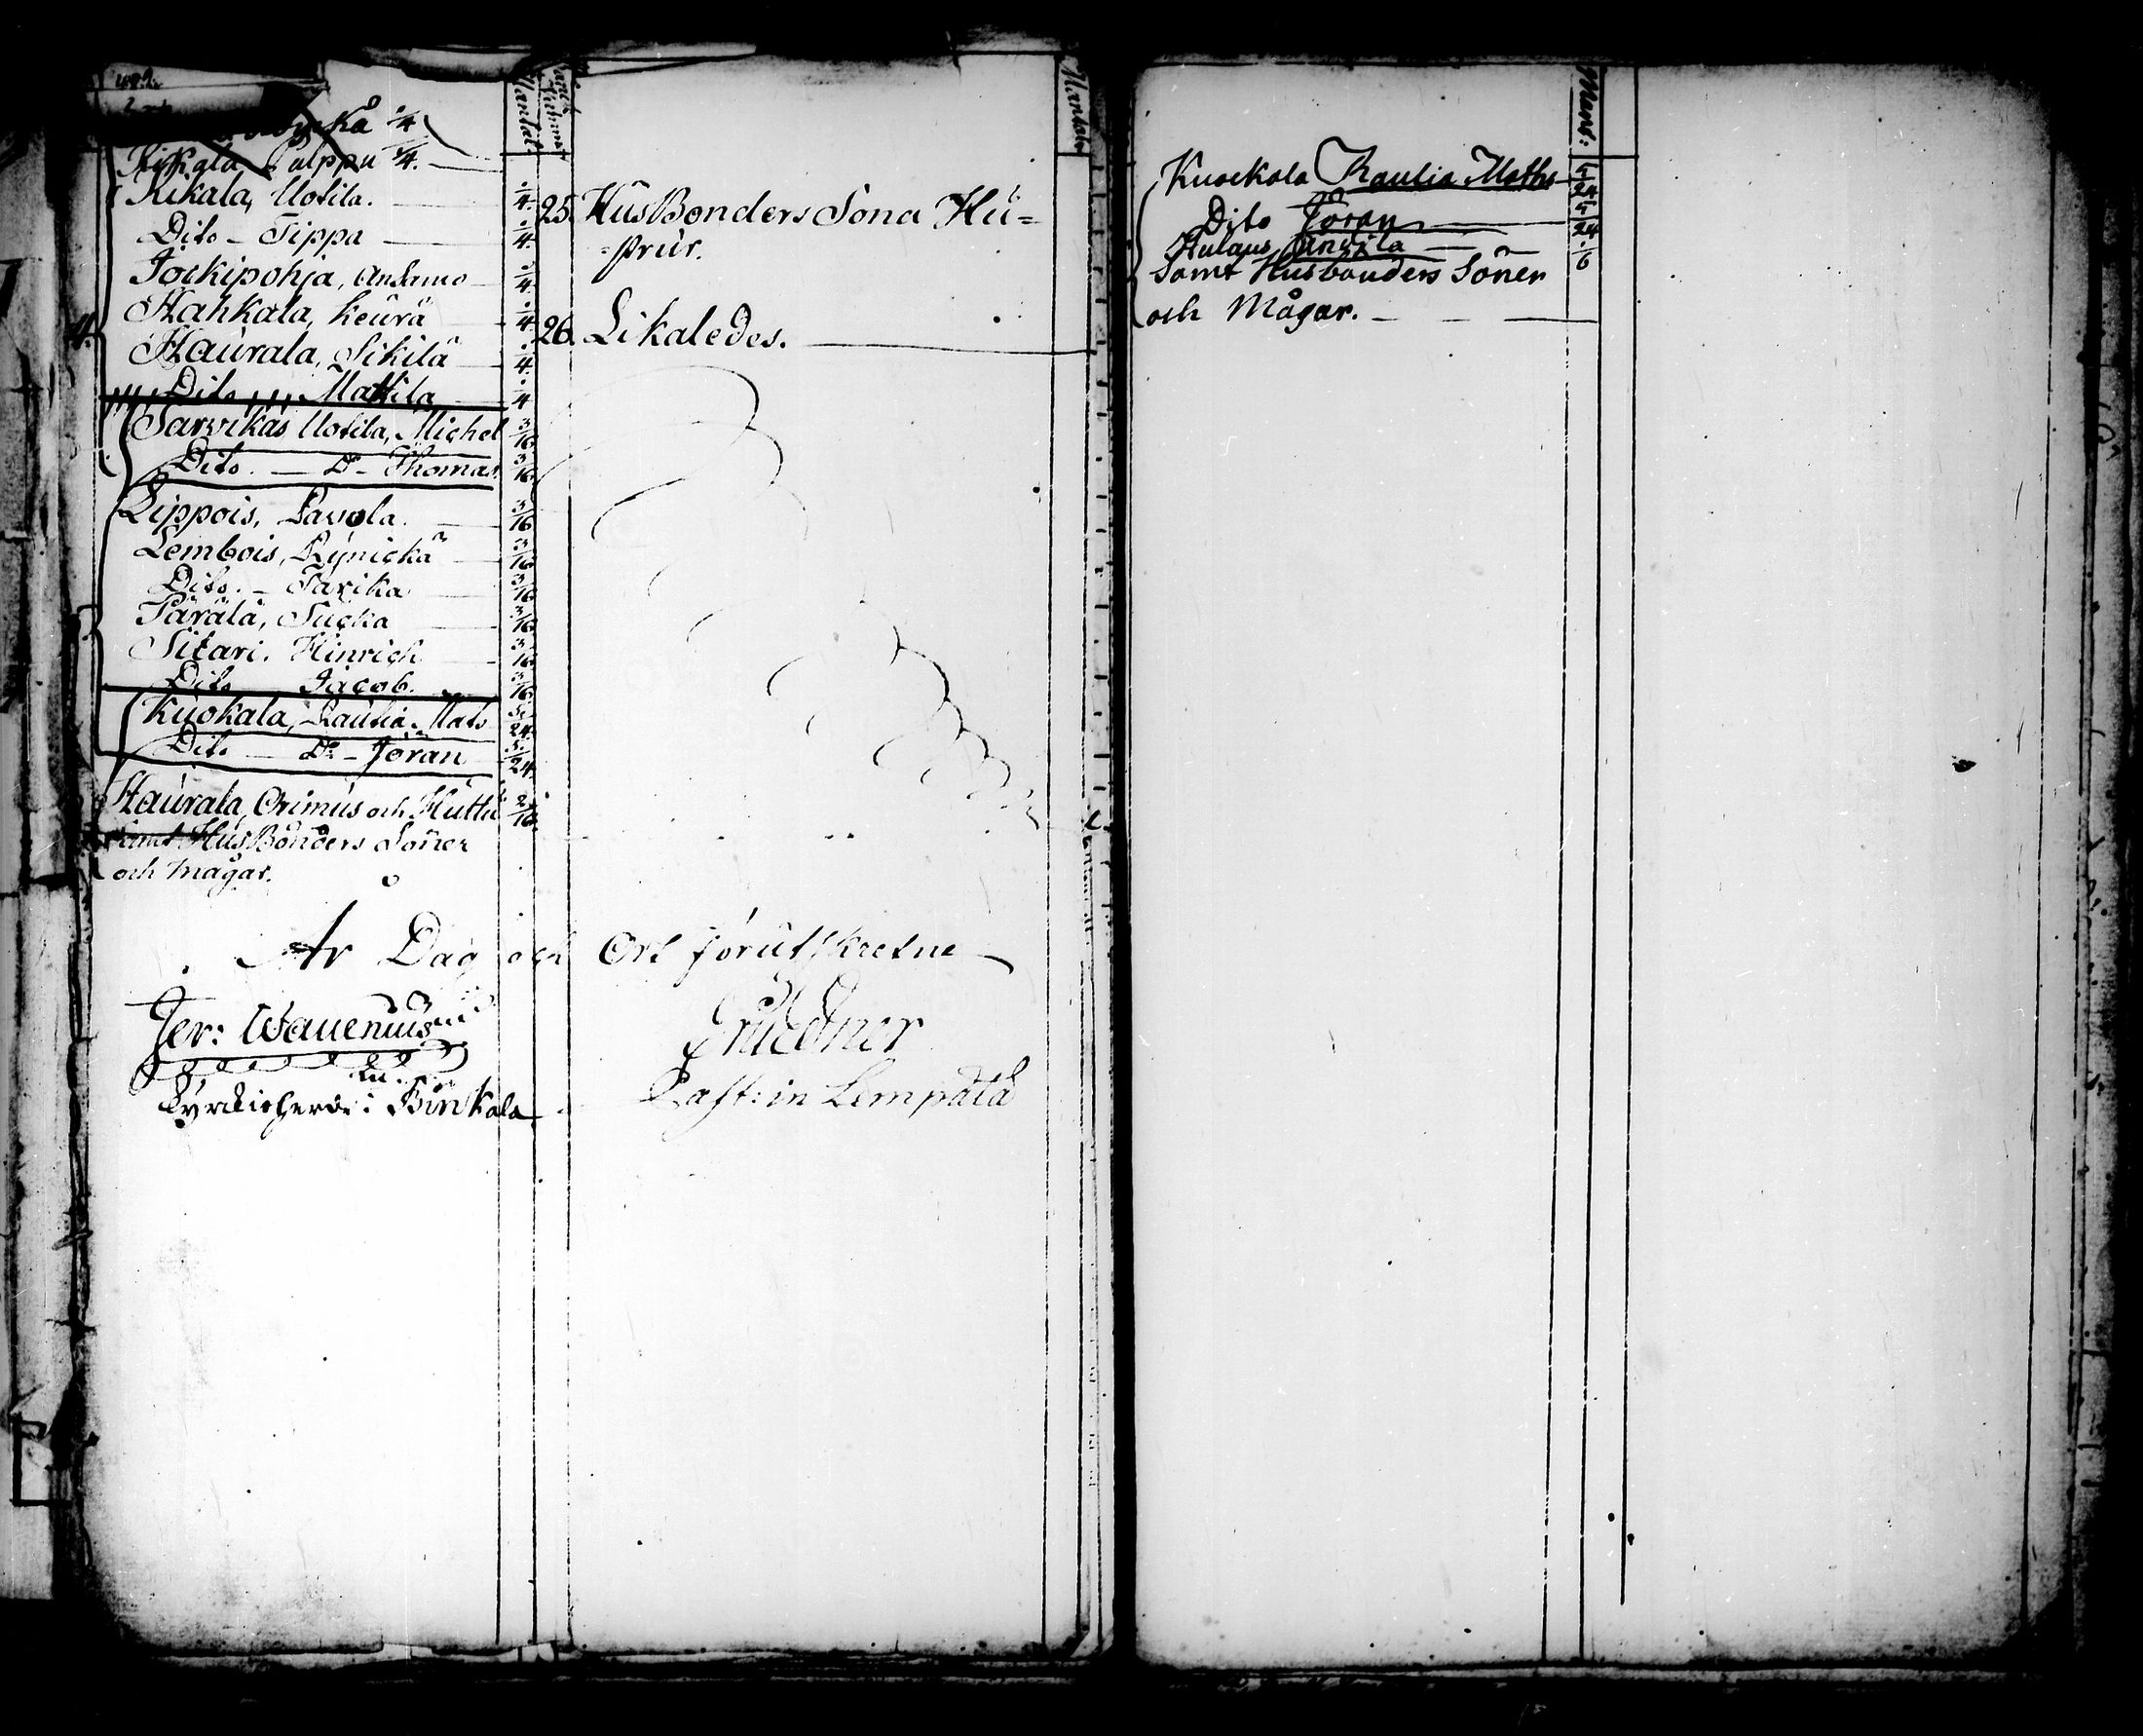 Mantal.
Mantal.
Kikala Pulppu 1/4.
Kikala, Uotila. 1/4.
Dito - Sippa 1/4.
Jockipohja, Ansamo 1/4.
Hahkala, Keurä 1/4.
4. Haurala, Sikilä 1/4.
Dito Mattila 1/4
Sarvikas Uotila, Michel 3/16
Dito. - Do - Thomas. 3/16
Lippois, Pavola. 3/16
Lembois, Rynickä 3/16
Dito. - Tarika 3/16
Pärälä, Sucka 3/16
Sitari. Hinrich 3/16
Dito Jacob. 3/16
Kuokala, Rautia. Mats 5/24.
Dito - Do - Jöran 5/24.
Haurala, Orimus och Huttu 2/16.
samt HusBonders Söner
och mågar.
25. HusBonders Söna Hu=
=strur.
26. Likaledes.
År Dag och Ort förutskrefne
Jer: Wauenius
Kyrckioherde i Birkala
Past: in Lempälä
Mant:
Kuockala Rautia Maths 5/24
Dito Jöran 5/24
Hulaus Anttila 1/6
Samt Husbonders Söner
och Mågar.